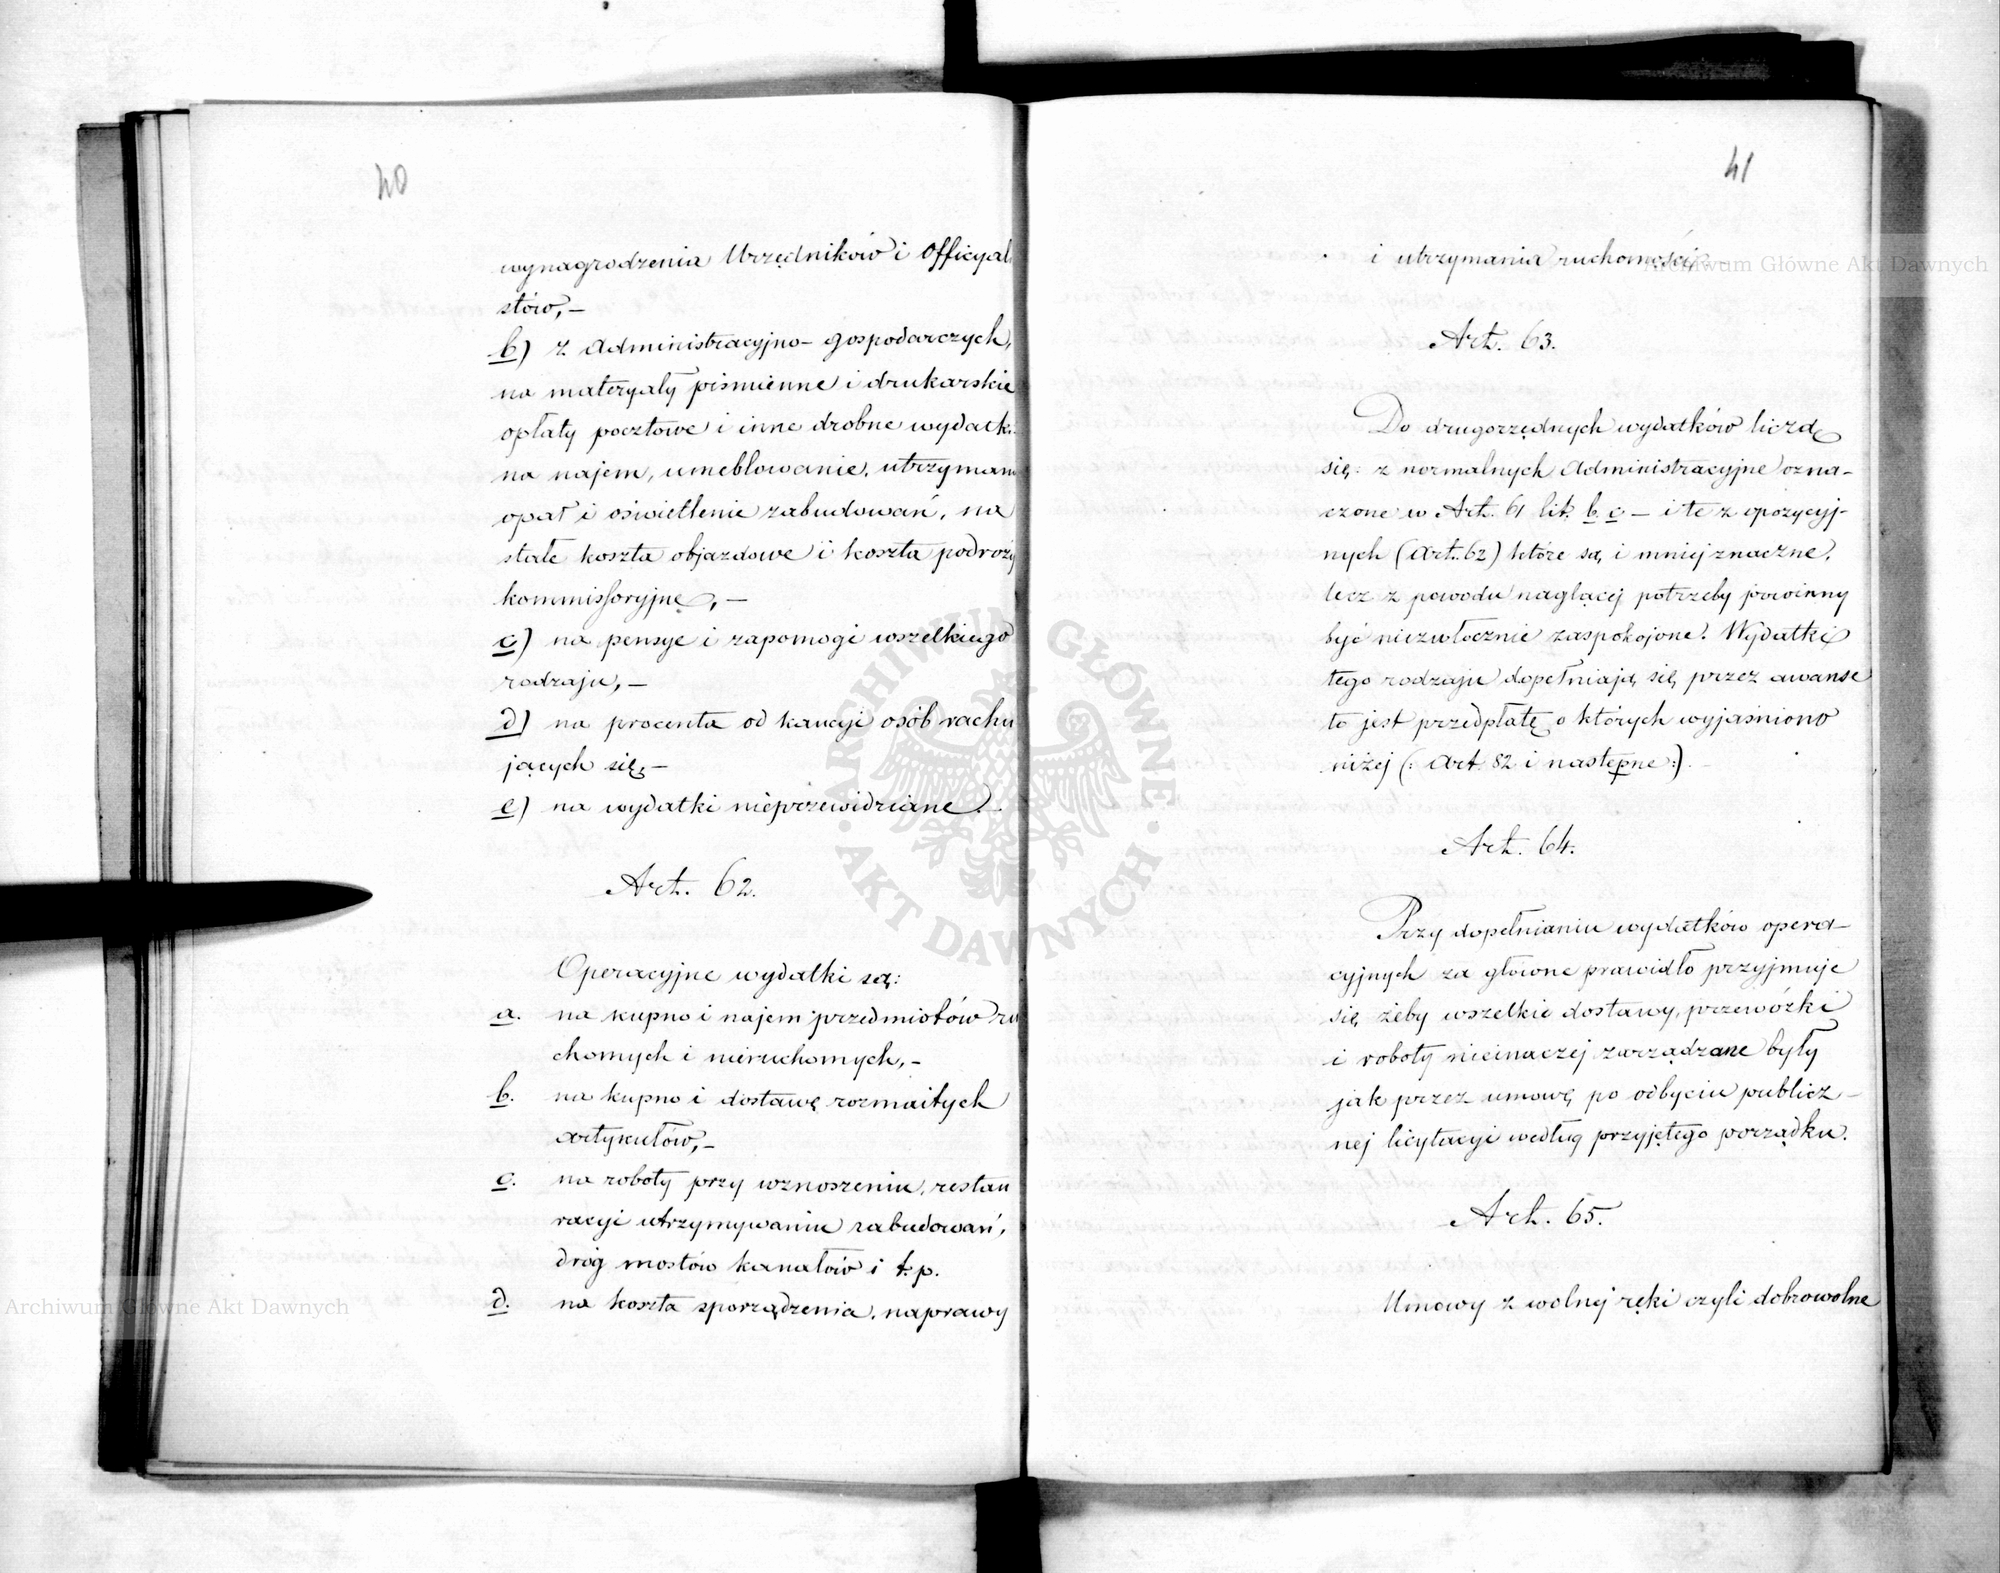 40
wynagrodzenia Urzędników i Officyal
stów,—
b) z administracyjno- gospodarczych,
na materyały piśmienne i drukarskie
opłaty pocztowe i inne drobne wydatk
na najem, umeblowanie, utrzyman
opał i oświetlenie zabudowań, na
stałe koszta objazdowe i koszta podroży
kommissoryjne,—
c) na pensye i zapomogi wszelkiego
rodzaju,—
d) na procenta od kaucyi osób rachu
jących się,—
e) na wydatki nieprzewidziane.—
Art. 62.
Operacyjne wydatki są:
a. na kupno i najem przedmiotów ru
chomych i nieruchomych,—
b. na kupno i dostawę rozmaitych
artykułów,—
c. na roboty przy wznoszeniu, restau
racyi utrzymywaniu zabudowań,
dróg mostów kanałów i t.p.
d. na koszta sporządzenia, naprawy
41
i utrzymania ruchomości,—
Art. 63.
Do drugorzędnych wydatków liczą
się: z normalnych administracyjne ozna-
czone w Art. 61 lit. b c — i te z opozycyj-
nych (Art. 62) które są i mniej znaczne,
lecz z powodu naglącej potrzeby powinny
być niezwłocznie zaspokojone. Wydatki
tego rodzaju dopełniają się przez awanse
to jest przedpłatę o których wyjaśniono
niżej (: Art. 82 i następne:).
Art. 64.
Przy dopełnianiu wydatków opera-
cyjnych za główne prawidło przyjmuje
się żeby wszelkie dostawy, przewózki
i roboty nieinaczej zarządzane były
jak przez umowę po odbyciu publicz-
nej licytacyi według przyjętego porządku.
Art. 65.
Umowy z wolnej ręki czyli dobrowolne
Archiwum Główne Akt Dawnych
Archiwum Główne Akt Dawnych
ARCHIWUM GŁÓWNE
AKT DAWNYCH